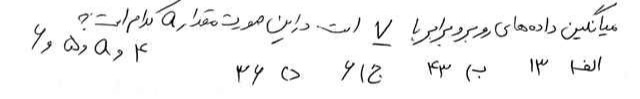 میانگین داده‌های روبرو برابر با ۷ است در این صورت مقدار a کدام است؟
۴ و a و ۵ و ۶
الف) ۱۳ ب) ۴۳ ج) ۶ د) ۳۶